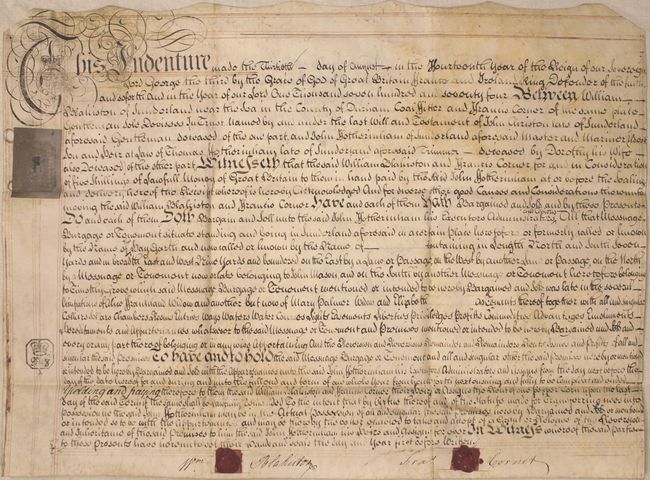 This Indenture made the Thirtieth day of August in the Fourteenth Year of the Reign of our Sovereign
Lord George the third by the Grace of God of Great Britain France and Ireland King Defender of the faith
and so forth And in the Year of our Lord One Thousand seven hundred and seventy four Between William
Blakiston of Sunderland near the Sea in the County of Durham Coal Fitter and Francis Cornor of the same place
Gentleman Sole Devisees In Trust named by and under the last Will and Testament of John late of Sunderland
aforesaid Gentleman deceased of the one part, and John Hotherinham of Sunderland aforesaid Master and Mariner
Son and Heir at Law of Thomas Hotherinham late of Sunderland aforesaid deceased by Dorothy his Wife
also Deceased of the other part Witnesseth that the said William Blakiston and Francis Cornor for and in Consideration
of Five Shillings of Lawfull Money of Great Britain to them in hand paid by the said John Hotherinham at or before the Sealing
and delivery hereof the Receipt whereof is hereby Acknowledged And for divers other good Causes and Considerations them
moving the said William Blakiston and Francis Cornor Have and each of them Hath Bargained and Sold and by these Presents
Do and each of them Doth Bargain and Sell unto the said John Hotherinham his Executors Administrators and Assigns All that Messuage
Burgage or Tenement situate standing and being in Sunderland aforesaid in a certain place heretofore or formerly called or known
by the Name of and now called or known by the Name of containing in Length North and South Seven
Yards and in breadth East and West Yards and boundered on the East by a Lane or Passage, on the West by another Lane or Passage, on the North
by a Messuage or Tenement now or late belonging to John Mason and on the South by another Messuage or Tenement heretofore belonging
to Timothy which said Messuage Burgage or Tenement mentioned or intended to be hereby Bargained and Sold was late in the several
Occupations of Widow and another but now of Mary Palmer Widow and Elizabeth thereof together with all and singular
Cellars Chambers Rooms Entries Ways Waters Water Courses Lights Easements Liberties Priviledges Profits Commodities Advantages Emoluments
Hereditaments and Appurtenances whatsoever to the said Messuage or Tenement and Premises mentioned or intended to be hereby Bargained and Sold and
every or any part thereof belonging or in any wise Appertaining And the Reversion and Reversions Remainder and Remainders Rents Issues and Profits of all and
singular the said Premises To have and to hold the said Messuage Burgage or Tenement and all and singular other the said premises hereby or mentioned
or intended to be hereby Bargained and Sold with the Appurtenances unto the said John Hotherinham his Executors Administrators and Assigns from the day next before the
day of the date hereof for and during and unto the full end and term of one whole Year from thence next ensuing and fully to be compleat and ended
Yielding and paying therefore to them the said William Blakiston and Francis Cornor their Heirs or Assigns the Rent of one pepper Corn upon the last
day of the said Term To the Intent that by Virtue hereof and of the Statute made for transferring uses into
Possession he the said John Hotherinham may be in the Actual Possession of all and singular the said premises hereby Bargained and Sold or mentioned
or intended so to be with the Appurtenances and may be thereby the better enabled to take and accept of a Grant and Release of the Reversion
and Inheritance of the said Premises to him the said John Hotherinham his Heirs and Assigns for ever In Witness whereof the said parties
to these Presents have hereunto set their Hands and Seals the day and Year first before Written
Wm Blakiston Fras Cornor